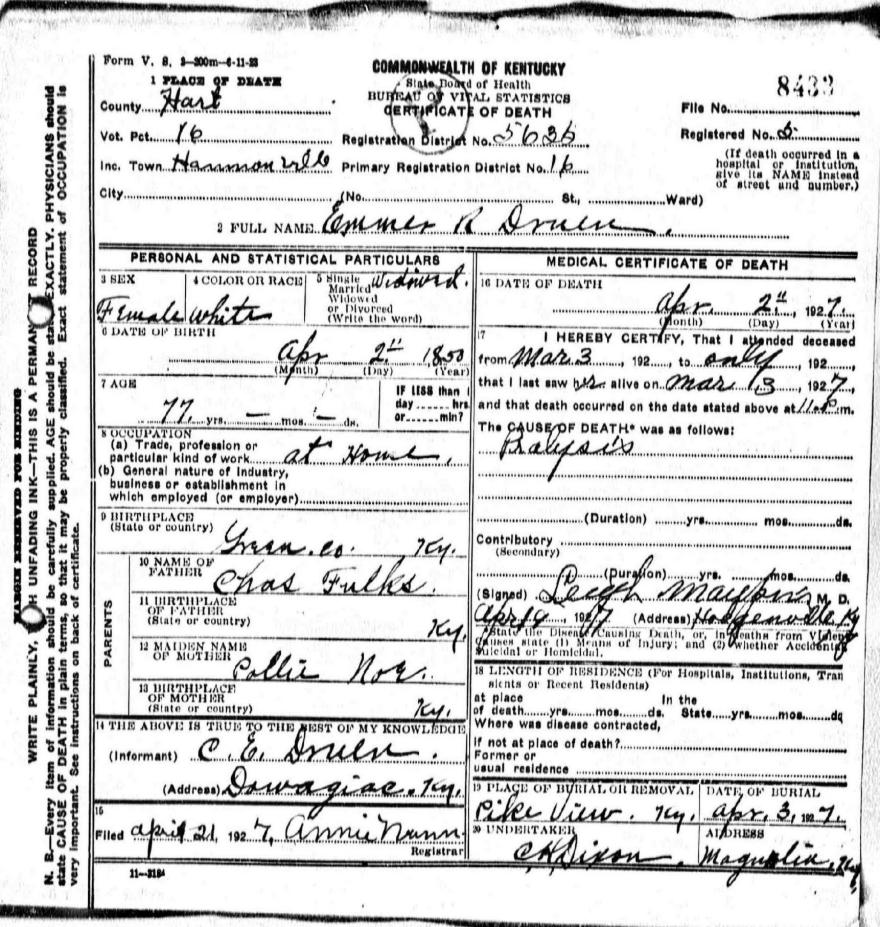 Form V. S. 3—200m—6-11-23
COMMONWEALTH OF KENTUCKY
State Board of Health
BUREAU OF VITAL STATISTICS
CERTIFICATE OF DEATH
8433
1 PLACE OF DEATH
County Hart
File No.
Vot. Pct. 16
Registration District No. 5635
Registered No. 5
Inc. Town Hammonville
Primary Registration District No. 16
(If death occurred in a
hospital or institution,
give its NAME instead
of street and number.)
City (No. St., Ward)
2 FULL NAME Emmer R Druen
PERSONAL AND STATISTICAL PARTICULARS
3 SEX
Female
4 COLOR OR RACE
White
5 Single
Married
Widowed
or Divorced
(Write the word)
Widowed.
6 DATE OF BIRTH
Apr 2" 1850
(Month) (Day) (Year)
7 AGE
77 yrs. — mos. — ds.
IF LESS than 1
day hrs
or min?
8 OCCUPATION
(a) Trade, profession or
particular kind of work at Home.
(b) General nature of Industry,
business or establishment in
which employed (or employer)
9 BIRTHPLACE
(State or country)
Green. Co. Ky.
PARENTS
10 NAME OF
FATHER
Chas Fulks.
11 BIRTHPLACE
OF FATHER
(State or country)
Ky.
12 MAIDEN NAME
OF MOTHER
Pollie Noe.
13 BIRTHPLACE
OF MOTHER
(State or country)
Ky.
14 THE ABOVE IS TRUE TO THE BEST OF MY KNOWLEDGE
(Informant) C. E. Druen.
(Address) Dowagiac. Ky.
15
Filed april 21, 1927, Annie Nunn
Registrar
11—3184
MEDICAL CERTIFICATE OF DEATH
16 DATE OF DEATH
Apr. 2", 1927.
(Month) (Day) (Year)
17
I HEREBY CERTIFY, That I attended deceased
from Mar. 3, 192 , to only, 192
that I last saw her alive on Mar 3, 1927
and that death occurred on the date stated above at 11. P. m.
The CAUSE OF DEATH* was as follows:
(Duration) yrs. mos. ds.
Contributory
(Secondary)
(Duration) yrs. mos. ds.
(Signed) M. D.
Apr 19, 1927 (Address) Hodgenville Ky
*State the Disease Causing Death, or, in deaths from Violent
Causes state (1) Means of Injury; and (2) whether Accidental,
Suicidal or Homicidal.
18 LENGTH OF RESIDENCE (For Hospitals, Institutions, Tran
sients or Recent Residents)
at place In the
of death yrs. mos. ds. State yrs. mos. ds
Where was disease contracted,
If not at place of death?
Former or
usual residence
19 PLACE OF BURIAL OR REMOVAL
Pike View. Ky.
DATE OF BURIAL
apr. 3, 1927.
20 UNDERTAKER
C H Dixon.
ADDRESS
Magnolia, Ky
MARGIN RESERVED FOR BINDING
WRITE PLAINLY, WITH UNFADING INK—THIS IS A PERMANENT RECORD
N. B.—Every item of information should be carefully supplied. AGE should be stated EXACTLY. PHYSICIANS should
state CAUSE OF DEATH in plain terms, so that it may be properly classified. Exact statement of OCCUPATION is
very important. See instructions on back of certificate.